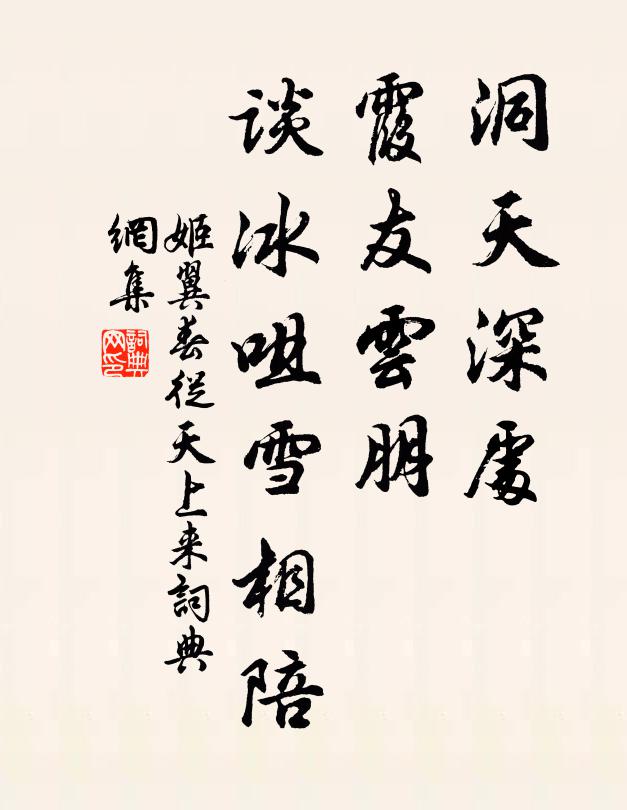 洞天深處
霞友雲朋
談冰咀雪相陪
姬翼春從天上来詞典
網集
詞典
网印